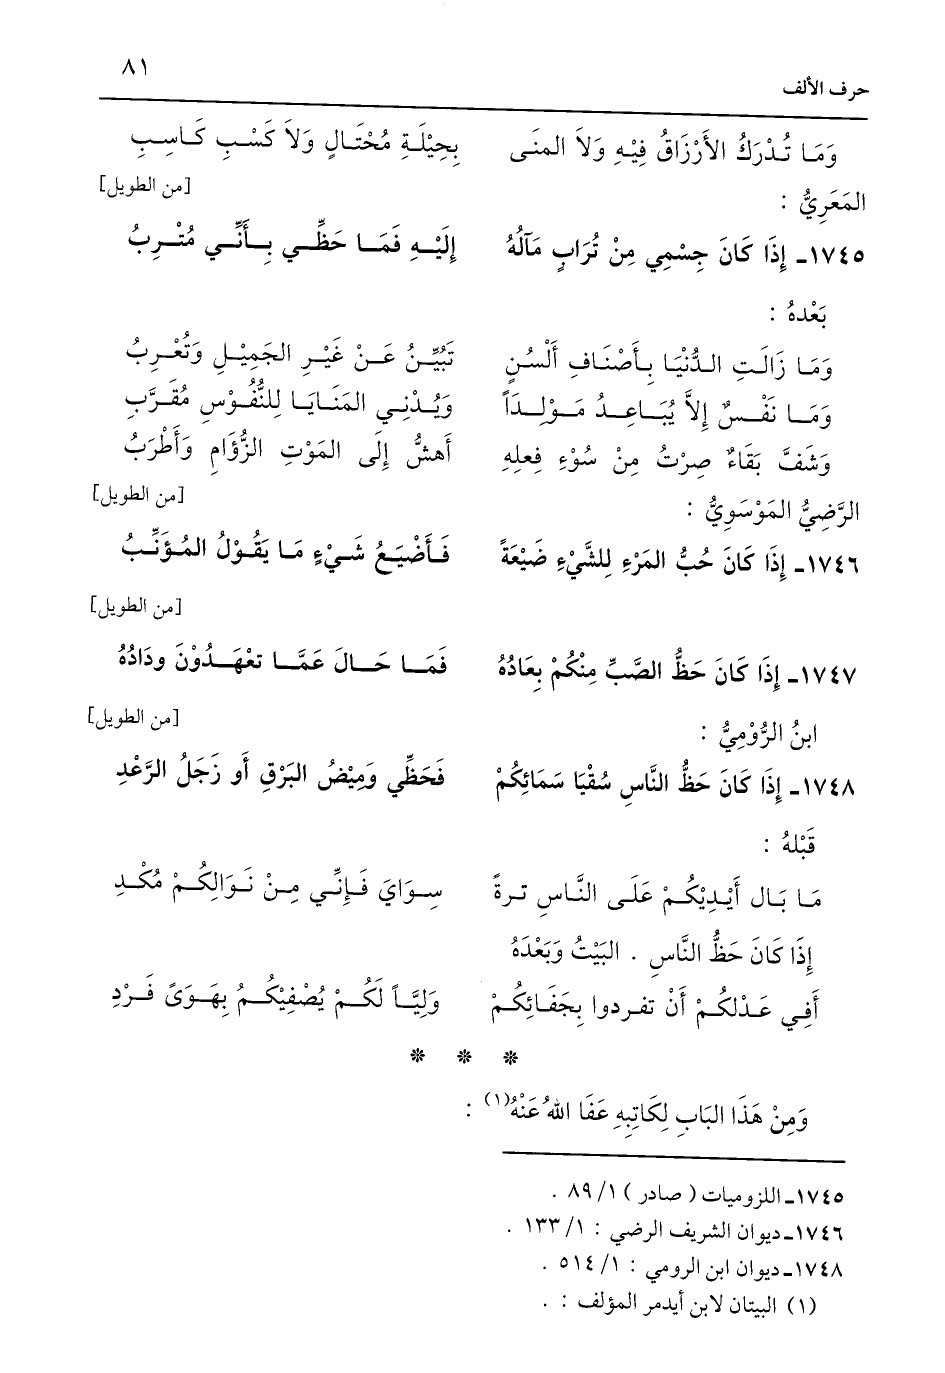 حرف الألف ٨١
وَمَا تُدْرَكُ الأَرْزَاقُ فِيْهِ وَلاَ المنَى بِحِيْلَةِ مُحْتَالٍ وَلاَ كَسْبِ كَاسِبِ
[من الطويل]
المَعَرِيُّ :
١٧٤٥ـ إِذَا كَانَ جِسْمِي مِنْ تُرَابٍ مَآلُهُ إِلَيْهِ فَمَا حَظِّي بِأَنِّي مُتْرِبُ
بَعْدهُ :
وَمَا زَالَتِ الدُّنْيَا بِأَصْنَافِ أَلْسُنٍ تَبُيِّنُ عَنْ غَيْرِ الجَمِيْلِ وَتُعْرِبُ
وَمَا نَفْسٌ إِلاَّ يُبَاعِدُ مَوْلِدَاً وَيُدْنِي المَنَايَا لِلنُّفُوْسِ مُقَرَّبِ
وَشَفَّ بَقَاءٌ صِرْتُ مِنْ سُوْءِ فِعلِهِ أَهشُّ إِلَى المَوْتِ الزُّؤَامِ وَأَطْرَبُ
[من الطويل]
الرَّضِيُّ المَوْسَوِيُّ :
١٧٤٦ـ إِذَا كَانَ حُبُّ المَرْءِ لِلشَّيْءِ ضَيْعَةً فَأَضْيَعُ شَيْءٍ مَا يَقُوْلُ المُؤَنِّبُ
[من الطويل]
١٧٤٧ـ إِذَا كَانَ حَظُّ الصَّبِّ مِنْكُمْ بِعَادُهُ فَمَا حَالَ عَمَّا تعْهَدُوْنَ ودَادُهُ
[من الطويل]
ابنُ الرُّوْمِيُّ :
١٧٤٨ـ إِذَا كَانَ حَظُّ النَّاسِ سُقْيَا سَمَائِكُمْ فَحَظِّي وَمِيْضُ البَرْقِ أَو زَجَلُ الرَّعْدِ
قَبْلهُ :
مَا بَال أَيْدِيْكُمْ عَلَى النَّاسِ ترةً سِوَايَ فَإِنِّي مِنْ نَوَالِكُمْ مُكْدِ
إِذَا كَانَ حَظُّ النَّاسِ . البَيْتُ وَبَعْدَهُ
أَفِي عَدْلكُمْ أَنْ تفردوا بِجَفَائِكُمْ وَلِيَّاً لَكُمْ يُصْفِيْكُمُ بِهَوَىً فَرْدِ
* * *
وَمِنْ هَذَا البَابِ لِكَاتِبِهِ عَفَا اللهُ عَنْهُ(١) :
١٧٤٥ـ اللزوميات ( صادر ) ١/ ٨٩ .
١٧٤٦ـ ديوان الشريف الرضي : ١/ ١٣٣ .
١٧٤٨ـ ديوان ابن الرومي : ١/ ٥١٤ .
(١) البيتان لابن أيدمر المؤلف : .